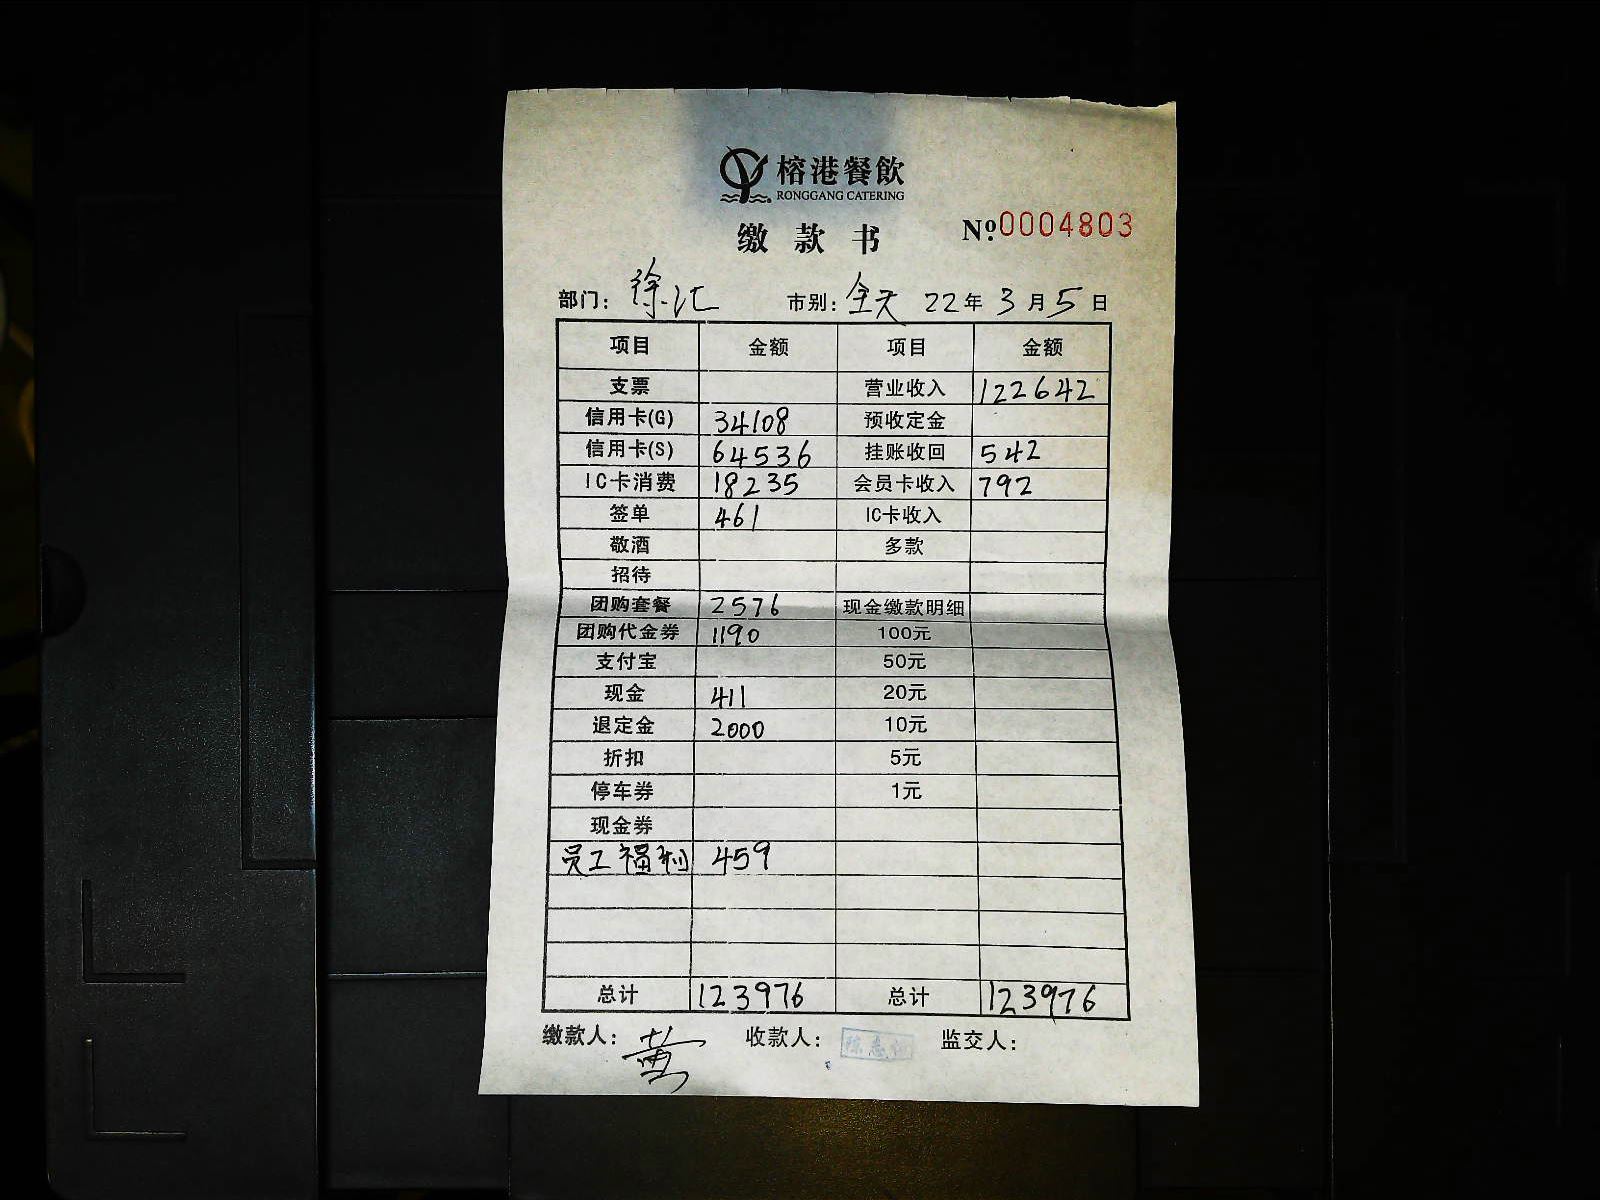 榕港餐飲
RONGGANG CATERING
缴款书
№0004803
部门：徐汇 市别：全天 22年3月5日
项目 金额 项目 金额
支票 营业收入 122642
信用卡(G) 34108 预收定金
信用卡(S) 64536 挂账收回 542
IC卡消费 18235 会员卡收入 792
签单 461 IC卡收入
敬酒 多款
招待
团购套餐 2576 现金缴款明细
团购代金券 1190 100元
支付宝 50元
现金 411 20元
退定金 2000 10元
折扣 5元
停车券 1元
现金券
员工福利 459
总计 123976 总计 123976
缴款人：黄 收款人： 监交人：